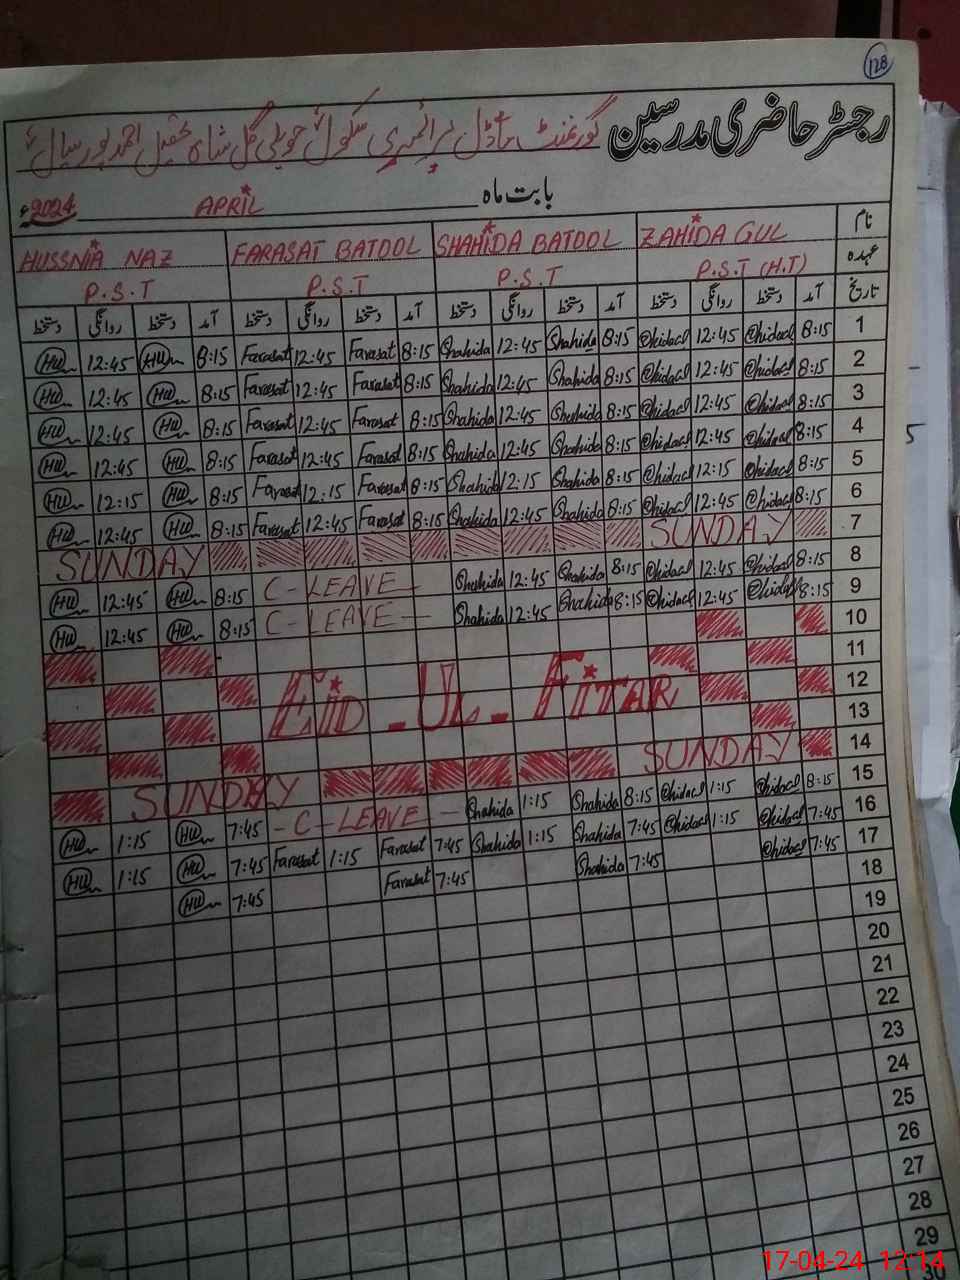 128
رجسٹر حاضری مدرسین گورنمنٹ ماڈل پرائمری سکول حویلی گل شاہ تحصیل احمد پور سیال
بابت ماہ APRIL 2024ء
نام ZAHIDA GUL SHAHIDA BATOOL FARASAT BATOOL HUSSNIA NAZ
عہدہ P.S.T (H.T) P.S.T P.S.T P.S.T
تاریخ آمد دستخط روانگی دستخط آمد دستخط روانگی دستخط آمد دستخط روانگی دستخط آمد دستخط روانگی دستخط
1 8:15 12:45 8:15 Shahida 12:45 Shahida 8:15 Farasat 12:45 Farasat 8:15 HU 12:45 HU
2 8:15 12:45 8:15 Shahida 12:45 Shahida 8:15 Farasat 12:45 Farasat 8:15 HU 12:45 HU
3 8:15 12:45 8:15 Shahida 12:45 Shahida 8:15 Farasat 12:45 Farasat 8:15 HU 12:45 HU
4 8:15 12:45 8:15 Shahida 12:45 Shahida 8:15 Farasat 12:45 Farasat 8:15 HU 12:45 HU
5 8:15 12:15 8:15 Shahida 12:15 Shahida 8:15 Farasat 12:15 Farasat 8:15 HU 12:15 HU
6 8:15 12:45 8:15 Shahida 12:45 Shahida 8:15 Farasat 12:45 Farasat 8:15 HU 12:45 HU
7 SUNDAY SUNDAY
8 8:15 12:45 8:15 Shahida 12:45 Shahida C-LEAVE- 8:15 HU 12:45 HU
9 8:15 12:45 8:15 Shahida 12:45 Shahida C-LEAVE- 8:15 HU 12:45 HU
10
11
12 EID-UL-FITAR
13
14 SUNDAY SUNDAY
15 8:15 1:15 8:15 Shahida 1:15 Shahida -C-LEAVE- 7:45 HU 1:15 HU
16 7:45 1:15 7:45 Shahida 1:15 Shahida 7:45 Farasat 1:15 Farasat 7:45 HU 1:15 HU
17 7:45 7:45 Shahida 7:45 Farasat 7:45 HU
18
19
20
21
22
23
24
25
26
27
28
29
30
17-04-24 12:14